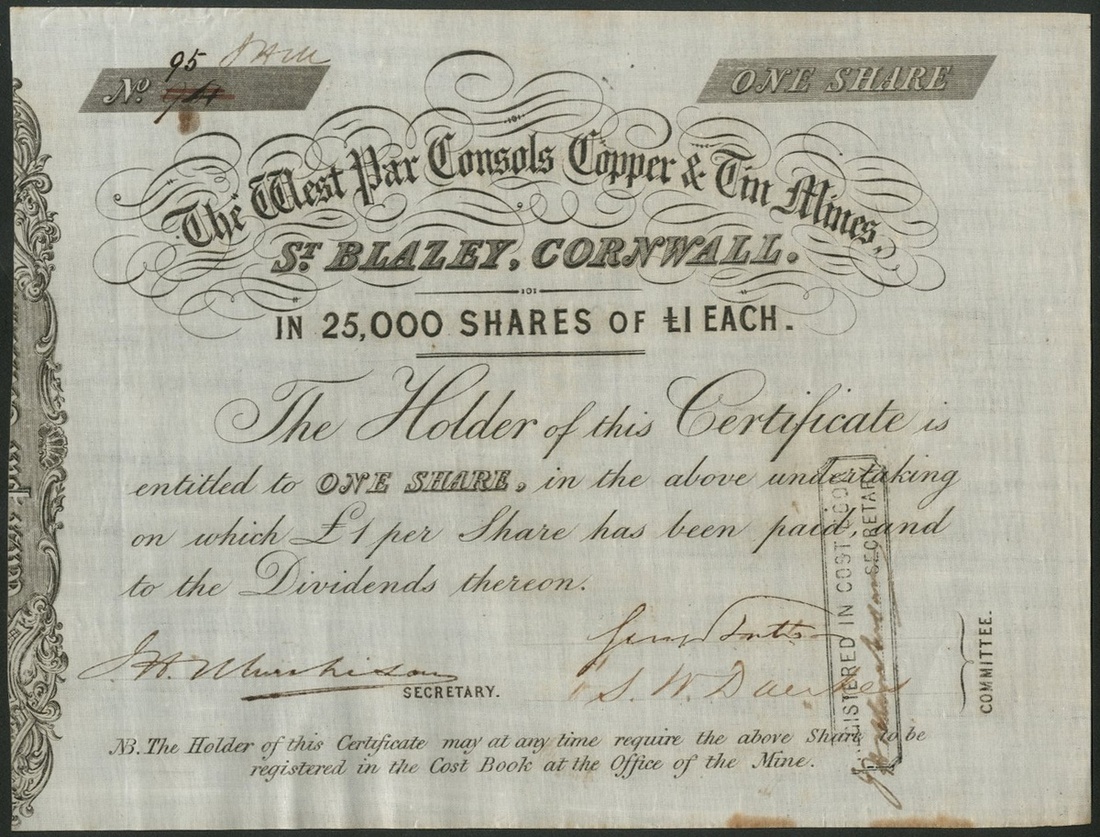 95 J H M
No.
ONE SHARE
The West Par Consols Copper & Tin Mines,
ST. BLAZEY, CORNWALL.
IN 25,000 SHARES OF £1 EACH.
The Holder of this Certificate is
entitled to ONE SHARE, in the above undertaking
on which £1 per Share has been paid, and
to the Dividends thereon.
J. H. Murchison
SECRETARY.
S. W. Daukes
COMMITTEE.
REGISTERED IN COST BOOK
SECRETARY
NB. The Holder of this Certificate may at any time require the above Share to be
registered in the Cost Book at the Office of the Mine.